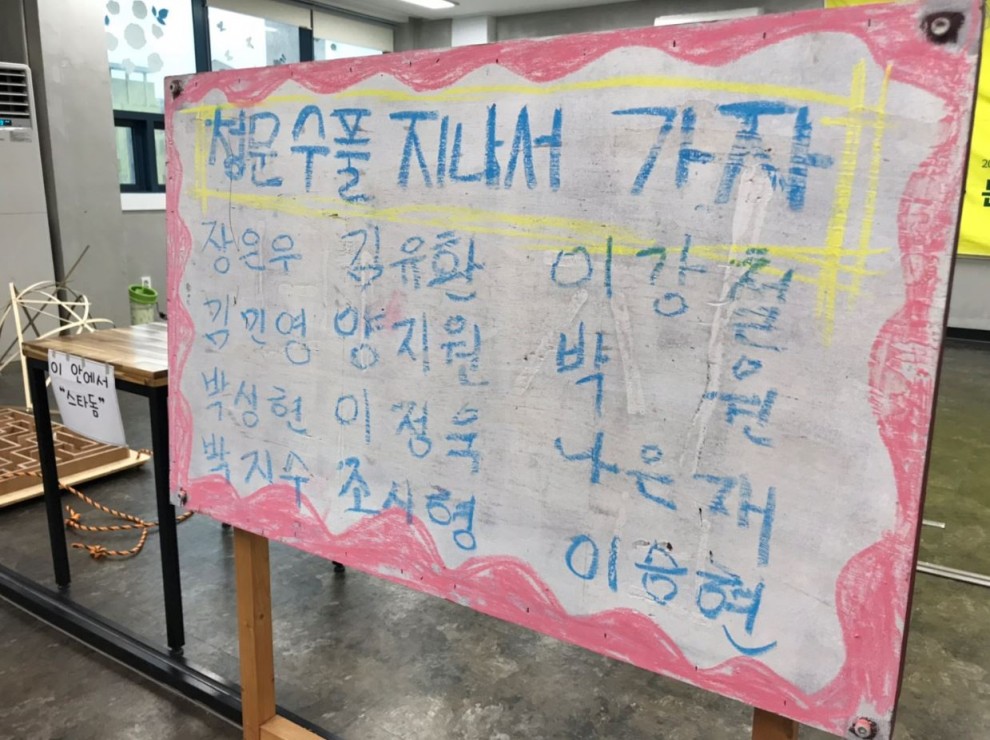 성문수풀 지나서 가자
장은우 김유환 이강철
김민영 양지원 박은원
박성현 이정훈 나은재
박지수 조시형 이승현
이 안에서
"스타돔"